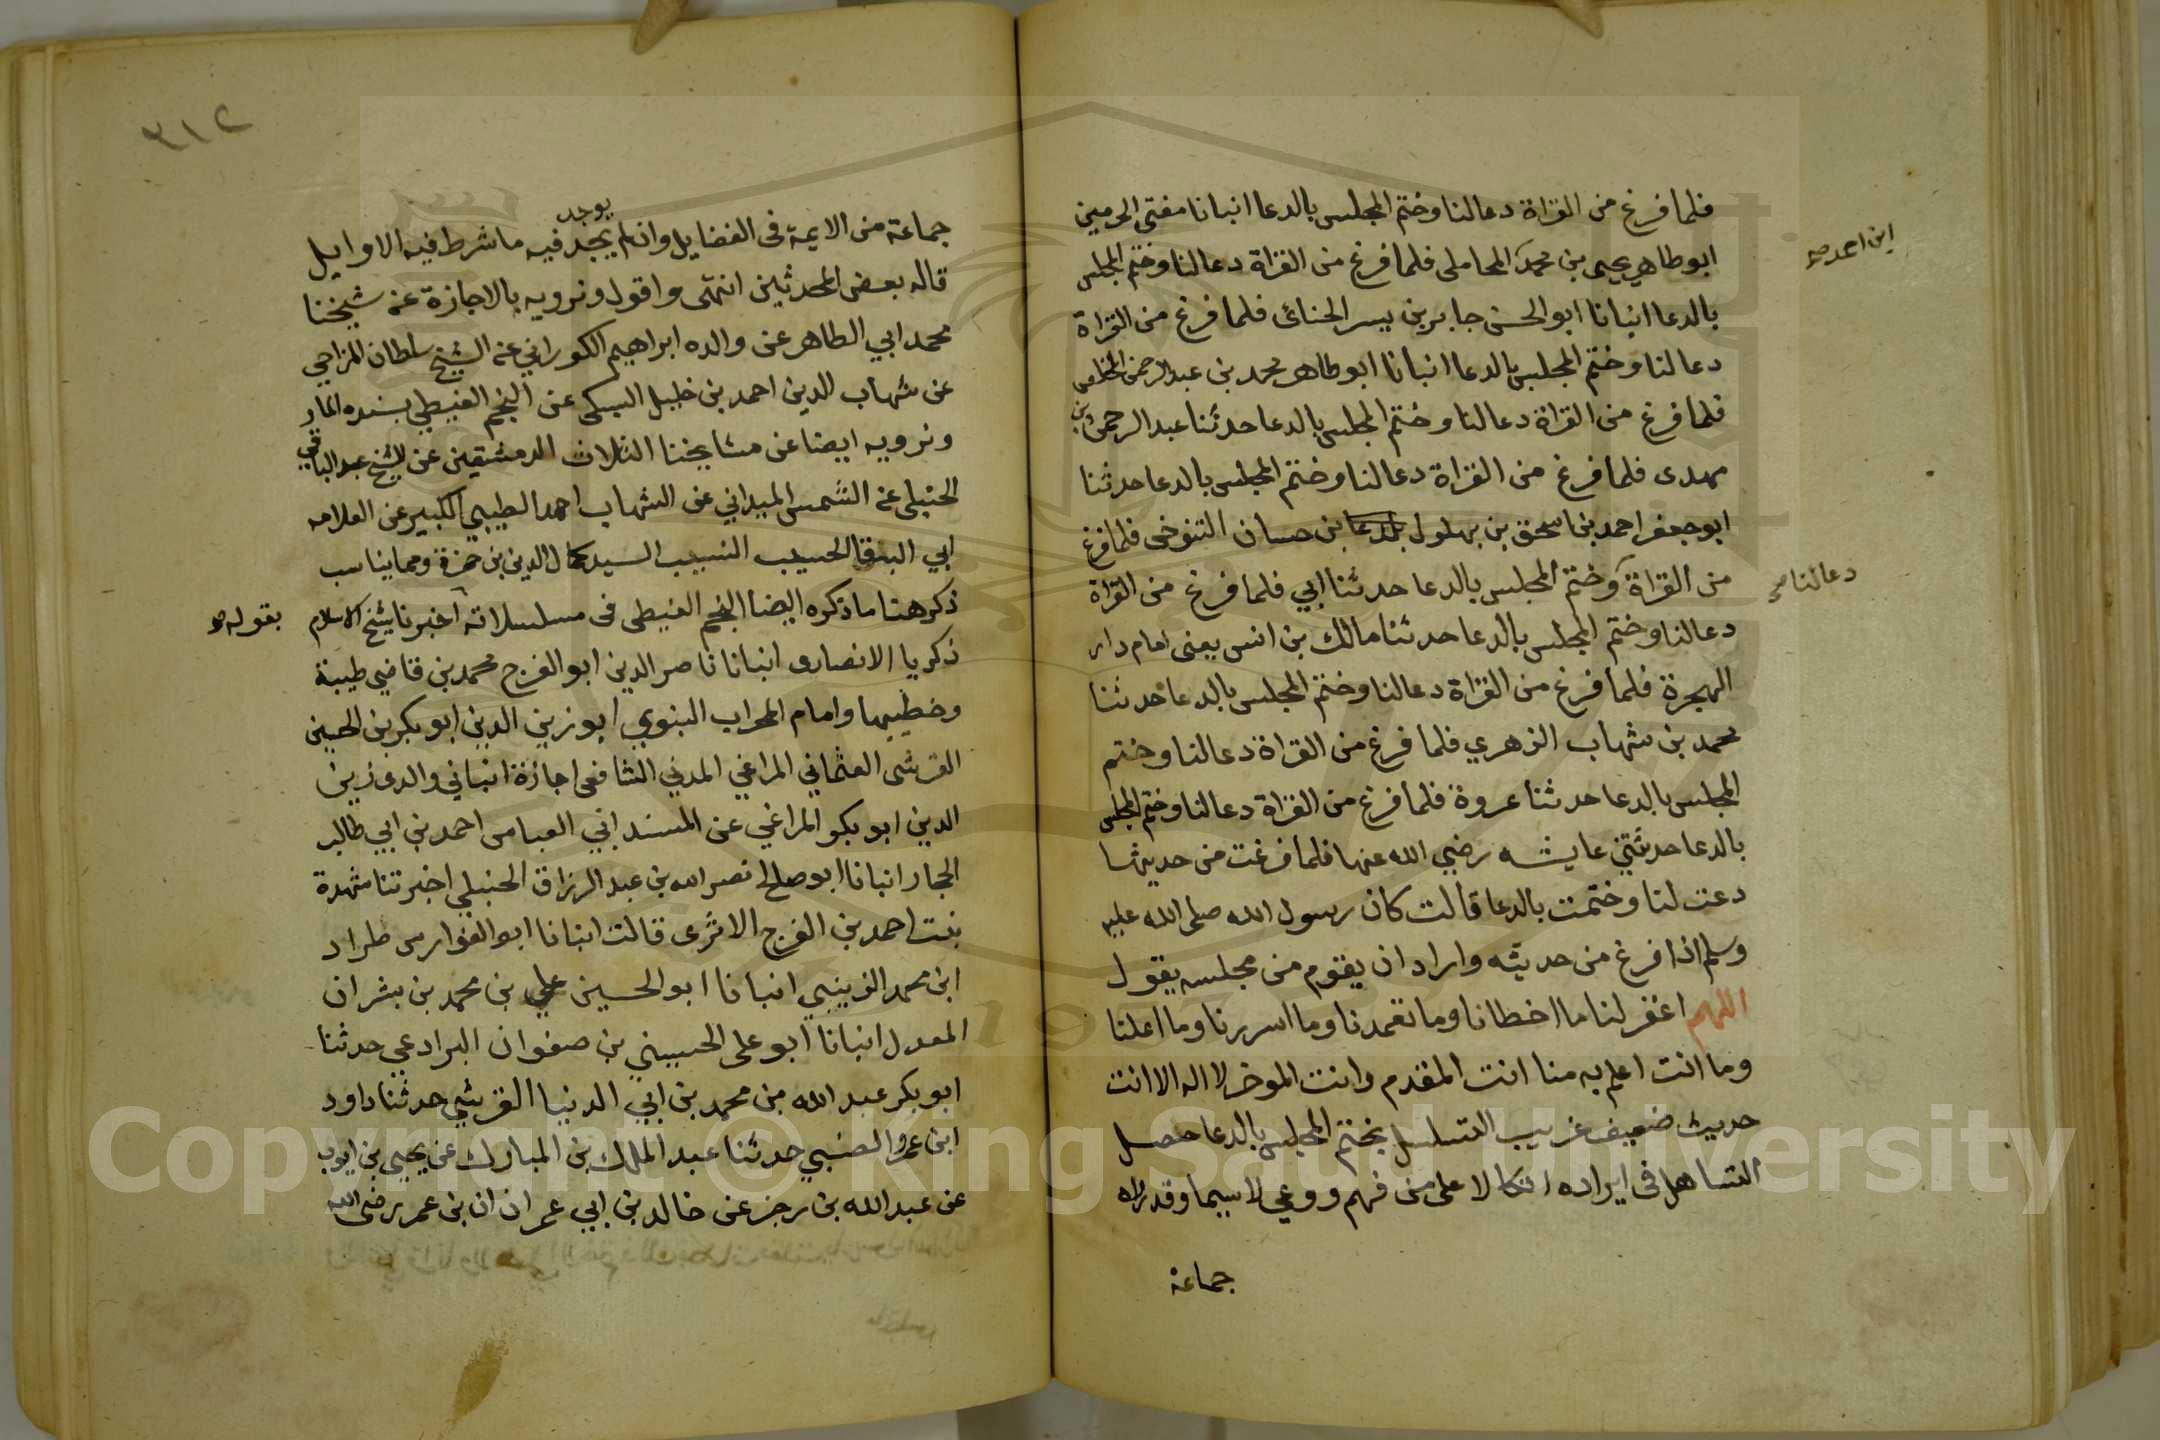 فلما فرغ من القراة دعا لنا وختم المجلس بالدعا انبانا مفتى الحرمين
ابو طاهر يحيى بن محمد المحاملى فلما فرغ من القراة دعا لنا وختم المجلس
ابن احمد صح
بالدعا انبانا ابو الحسن جابر بن يسر الحنائى فلما فرغ من القراة
دعا لنا وختم المجلس بالدعا انبانا ابو طاهر محمد بن عبد الرحمن المخلص
فلما فرغ من القراة دعا لنا وختم المجلس بالدعا حدثنا عبد الرحمن بن
مهدى فلما فرغ من القراة دعا لنا وختم المجلس بالدعا حدثنا
ابو جعفر احمد بن اسحق بن بهلول بن حسان التنوخى فلما فرغ
من القراة وختم المجلس بالدعا حدثنا ابي فلما فرغ من القراة
دعا لنا صح
دعا لنا وختم المجلس بالدعا حدثنا مالك بن انس يعنى امام دار
الهجرة فلما فرغ من القراة دعا لنا وختم المجلس بالدعا حدثنا
محمد بن شهاب الزهري فلما فرغ من القراة دعا لنا وختم
المجلس بالدعا حدثنا عروة فلما فرغ من القراة دعا لنا وختم المجلس
بالدعا حدثتني عايشه رضي الله عنها فلما فرغت من حديثها
دعت لنا وختمت بالدعا قالت كان رسول الله صلى الله عليه
وسلم اذا فرغ من حديثه واراد ان يقوم من مجلسه يقول
اللهم اغفر لنا ما اخطانا وما تعمدنا وما اسررنا وما اعلنا
وما انت اعلم به منا انت المقدم وانت الموخر لا اله الا انت
حديث ضعيف غريب التسلسل بختم المجلس بالدعا حصل
التساهل فى ايراده اتكالا على من فهم ووعي لا سيما وقد رواه
جماعة
٣١٢
جماعة من الايمة فى الفضايل وان لم يجد فيه ما شرط فيه الاوايل
يوجد
قاله بعض المحدثين انتهى واقول ونرويه بالاجازة عن شيخنا
محمد ابي الطاهر عن والده ابراهيم الكوراني عن الشيخ سلطان المزاحي
عن شهاب الدين احمد بن خليل السبكى عن النجم الغيطي بسنده المار
ونرويه ايضا عن مشايخنا الثلاث الدمشقين عن الشيخ عبد الباقي
الحنبلى عن الشمس الميداني عن الشهاب احمد الطيبي الكبير عن العلامه
ابي البقا الحسيب النسيب السيد كمال الدين بن حمزة ومما يناسب
ذكره هنا ما ذكره ايضا النجم الغيطى فى مسلسلاته اخبرنا شيخ الاسلام
بقوله صح
زكريا الانصارى انبانا ناصر الدين ابو الفرج محمد بن قاضي طيبة
وخطيبها وامام المحراب النبوي ابو زين الدين ابو بكر بن الحسين
القرشى العثماني المراغي المدني الشافعى اجازة انباني والدى زين
الدين ابو بكر المراغي عن المسند ابي العباس احمد بن ابي طالب
الحجار انبانا ابو صالح نصر الله بن عبد الرزاق الحنبلي اخبرتنا شهدة
بنت احمد بن الفرج الاثرى قالت انبانا ابو الفوارس طراد
ابن محمد الزينبي انبانا ابو الحسين علي بن محمد بن بشران
المعدل انبانا ابو على الحسين بن صفوان البرادعي حدثنا
ابو بكر عبد الله بن محمد بن ابي الدنيا القرشي حدثنا داود
ابن عمرو الضبي حدثنا عبد الملك بن المبارك عن يحيى بن ايوب
عن عبد الله بن زحر عن خالد بن ابي عمران ان بن عمر رضى الله
Copyright © King Saud University